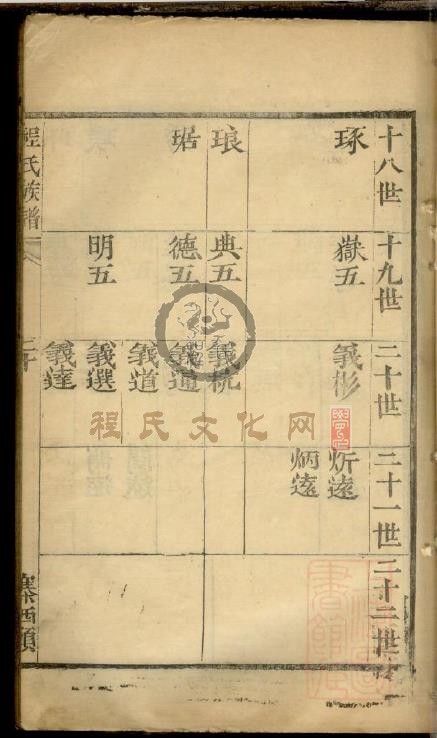 十八世
十九世
二十世
二十一世
二十二世
琢
嶽五
義彬
炘遠
炳遠
琅
典五
義杭
琚
德五
義通
義道
明五
義選
義達
程氏族譜
二十
寨西頭
程氏文化网